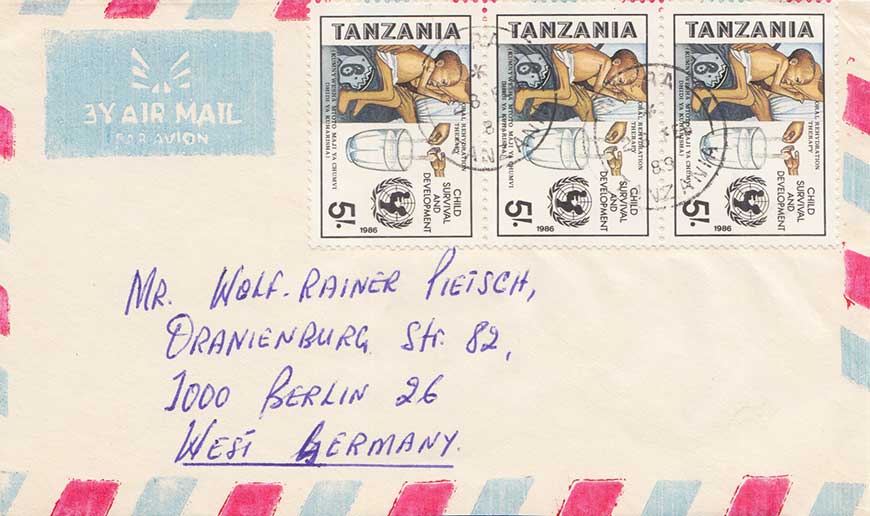 3Y AIR MAIL
PAR AVION
TANZANIA
ORAL REHYDRATION
THERAPY
(KUMNYWESHA MTOTO MAJI YA CHUMVI
DHIDI YA KUHARISHA)
CHILD
SURVIVAL
AND
DEVELOPMENT
5/.
1986
TANZANIA
ORAL REHYDRATION
THERAPY
(KUMNYWESHA MTOTO MAJI YA CHUMVI
DHIDI YA KUHARISHA)
CHILD
SURVIVAL
AND
DEVELOPMENT
5/.
1986
TANZANIA
ORAL REHYDRATION
THERAPY
(KUMNYWESHA MTOTO MAJI YA CHUMVI
DHIDI YA KUHARISHA)
CHILD
SURVIVAL
AND
DEVELOPMENT
5/.
1986
MR. WOLF-RAINER PIETSCH,
ORANIENBURG Str. 82,
1000 BERLIN 26
WEST GERMANY.